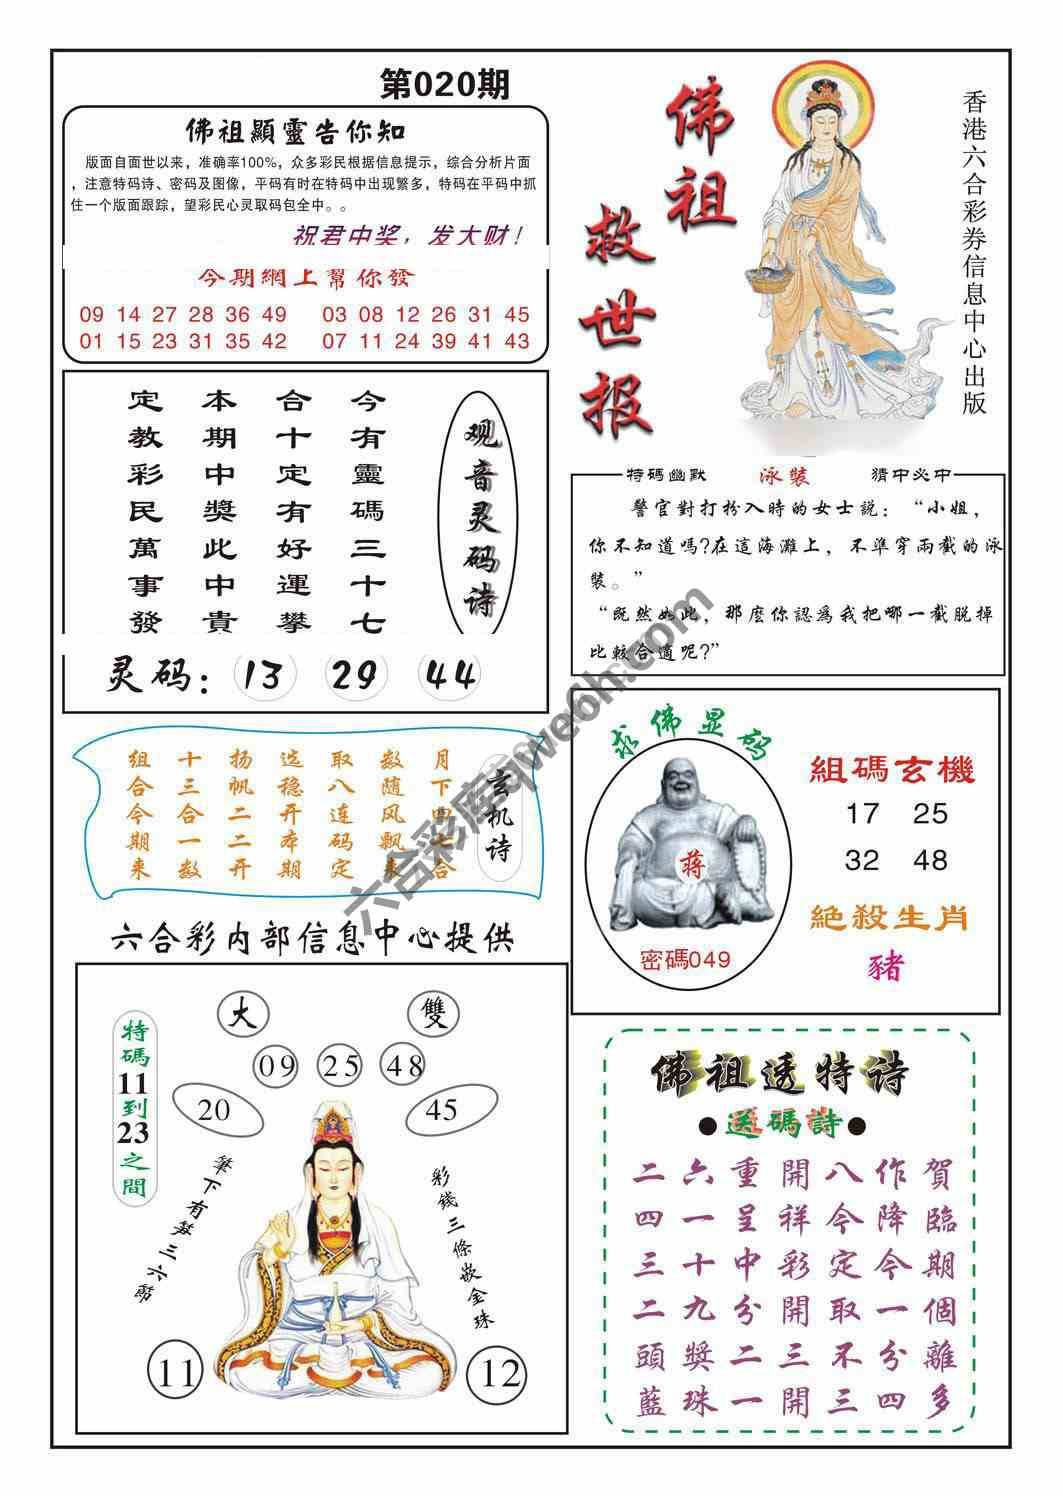 第020期
佛祖顯靈告你知
版面自面世以来，准确率100%，众多彩民根据信息提示，综合分析片面
，注意特码诗、密码及图像，平码有时在特码中出现繁多，特码在平码中抓
住一个版面跟踪，望彩民心灵取码包全中。。
祝君中奖，发大财！
今期網上幫你發
09 14 27 28 36 49 03 08 12 26 31 45
01 15 23 31 35 42 07 11 24 39 41 43
佛祖
救世报
香港六合彩券信息中心出版
观音灵码诗
今有靈碼三十七
合十定有好運攀
本期中獎此中貴
定教彩民萬事發
灵码：13 29 44
特碼幽默 泳裝 猜中必中
警官對打扮入時的女士説：“小姐，
你不知道嗎?在這海灘上，不準穿兩截的泳
裝。”
“既然如此，那麽你認爲我把哪一截脱掉
比較合適呢?”
玄机诗
月下四七合
数随风飘来
取八连码定
选稳开本期
扬帆二二开
十三合一数
组合今期来
求佛显码
蒋
密碼049
組碼玄機
17 25
32 48
絕殺生肖
豬
六合彩内部信息中心提供
特碼11到23之間
大 雙
09 25 48
20 45
筆下有笋三六節
彩錢三條嵌金珠
11 12
佛祖透特诗
●送碼詩●
二六重開八作賀
四一呈祥今降臨
三十中彩定今期
二九分開取一個
頭獎二三不分離
藍珠一開三四多
六合彩库qwe6h.com